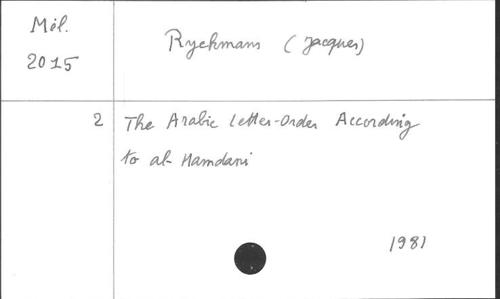 Mél.
2015
Ryckmans (Jacques)
2 The Arabic Letter-Order According
to al-Hamdani
1981